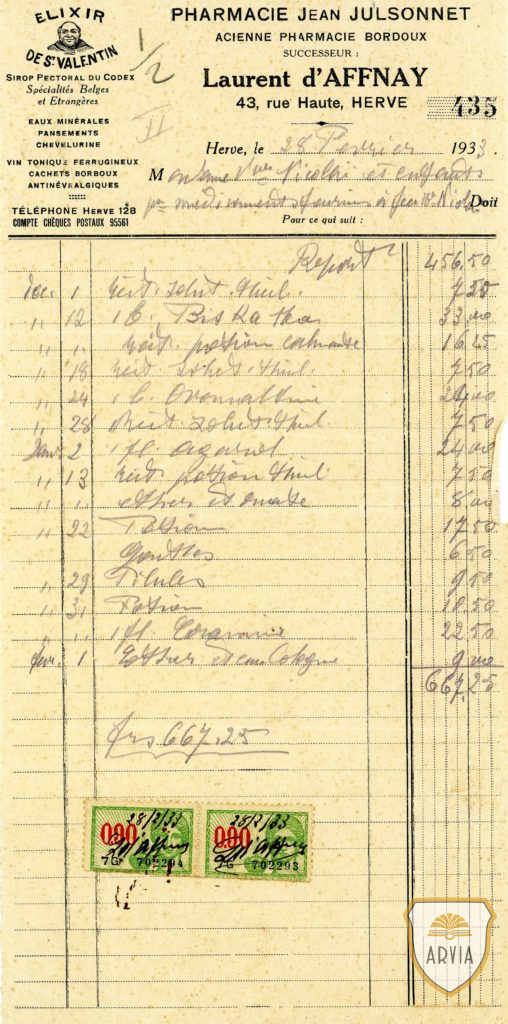 ELIXIR
DE St VALENTIN
SIROP PECTORAL DU CODEX
Spécialités Belges
et Etrangères
EAUX MINÉRALES
PANSEMENTS
CHEVELURINE
VIN TONIQUE FERRUGINEUX
CACHETS BORBOUX
ANTINÉVRALGIQUES
TÉLÉPHONE HERVE 128
COMPTE CHÈQUES POSTAUX 95561
1/2
II
PHARMACIE JEAN JULSONNET
ACIENNE PHARMACIE BORDOUX
SUCCESSEUR :
Laurent d'AFFNAY
43, rue Haute, HERVE
435
Herve, le 28 Fevrier 1933
Madame Vve Nicolai et enfants
pr medicaments fournis à feu Mr Doit
Pour ce qui suit :
Report 456.50
Dec. 1 7.50
" 12 1 B. 33,00
" " potion calmante 16.25
" 18 7.50
" 24 1 B. Ovomaltine 24 00
" 28 7.50
Janv. 2 1 fl. Agarol 24 00
" 13 potion 7.50
" " ether et ouate 8 00
" 22 Potion 17.50
Gouttes 6.50
" 29 Pilules 9.50
" 31 Potion 10.50
" " 1 fl. Coramine 22.50
fevr. 1 Ether et eau Cologne 9 00
667,25
frs 667.25
28/2/33
0.60
7G 702294
28/2/33
0.60
7G 702293
ARVIA